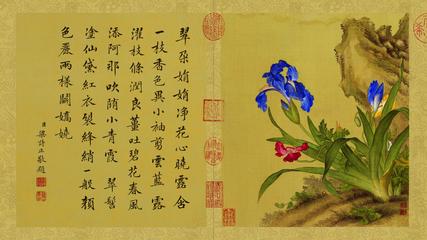 翠朶娟娟淨花心曉露含
一枝香色異小袖剪雲藍露
濯枝條潤良薑吐碧花春風
添阿那吹蔭小青霞 翠髻
塗仙黛紅衣製絳綃一般顏
色麗兩樣鬭嬌嬈
臣梁詩正敬題